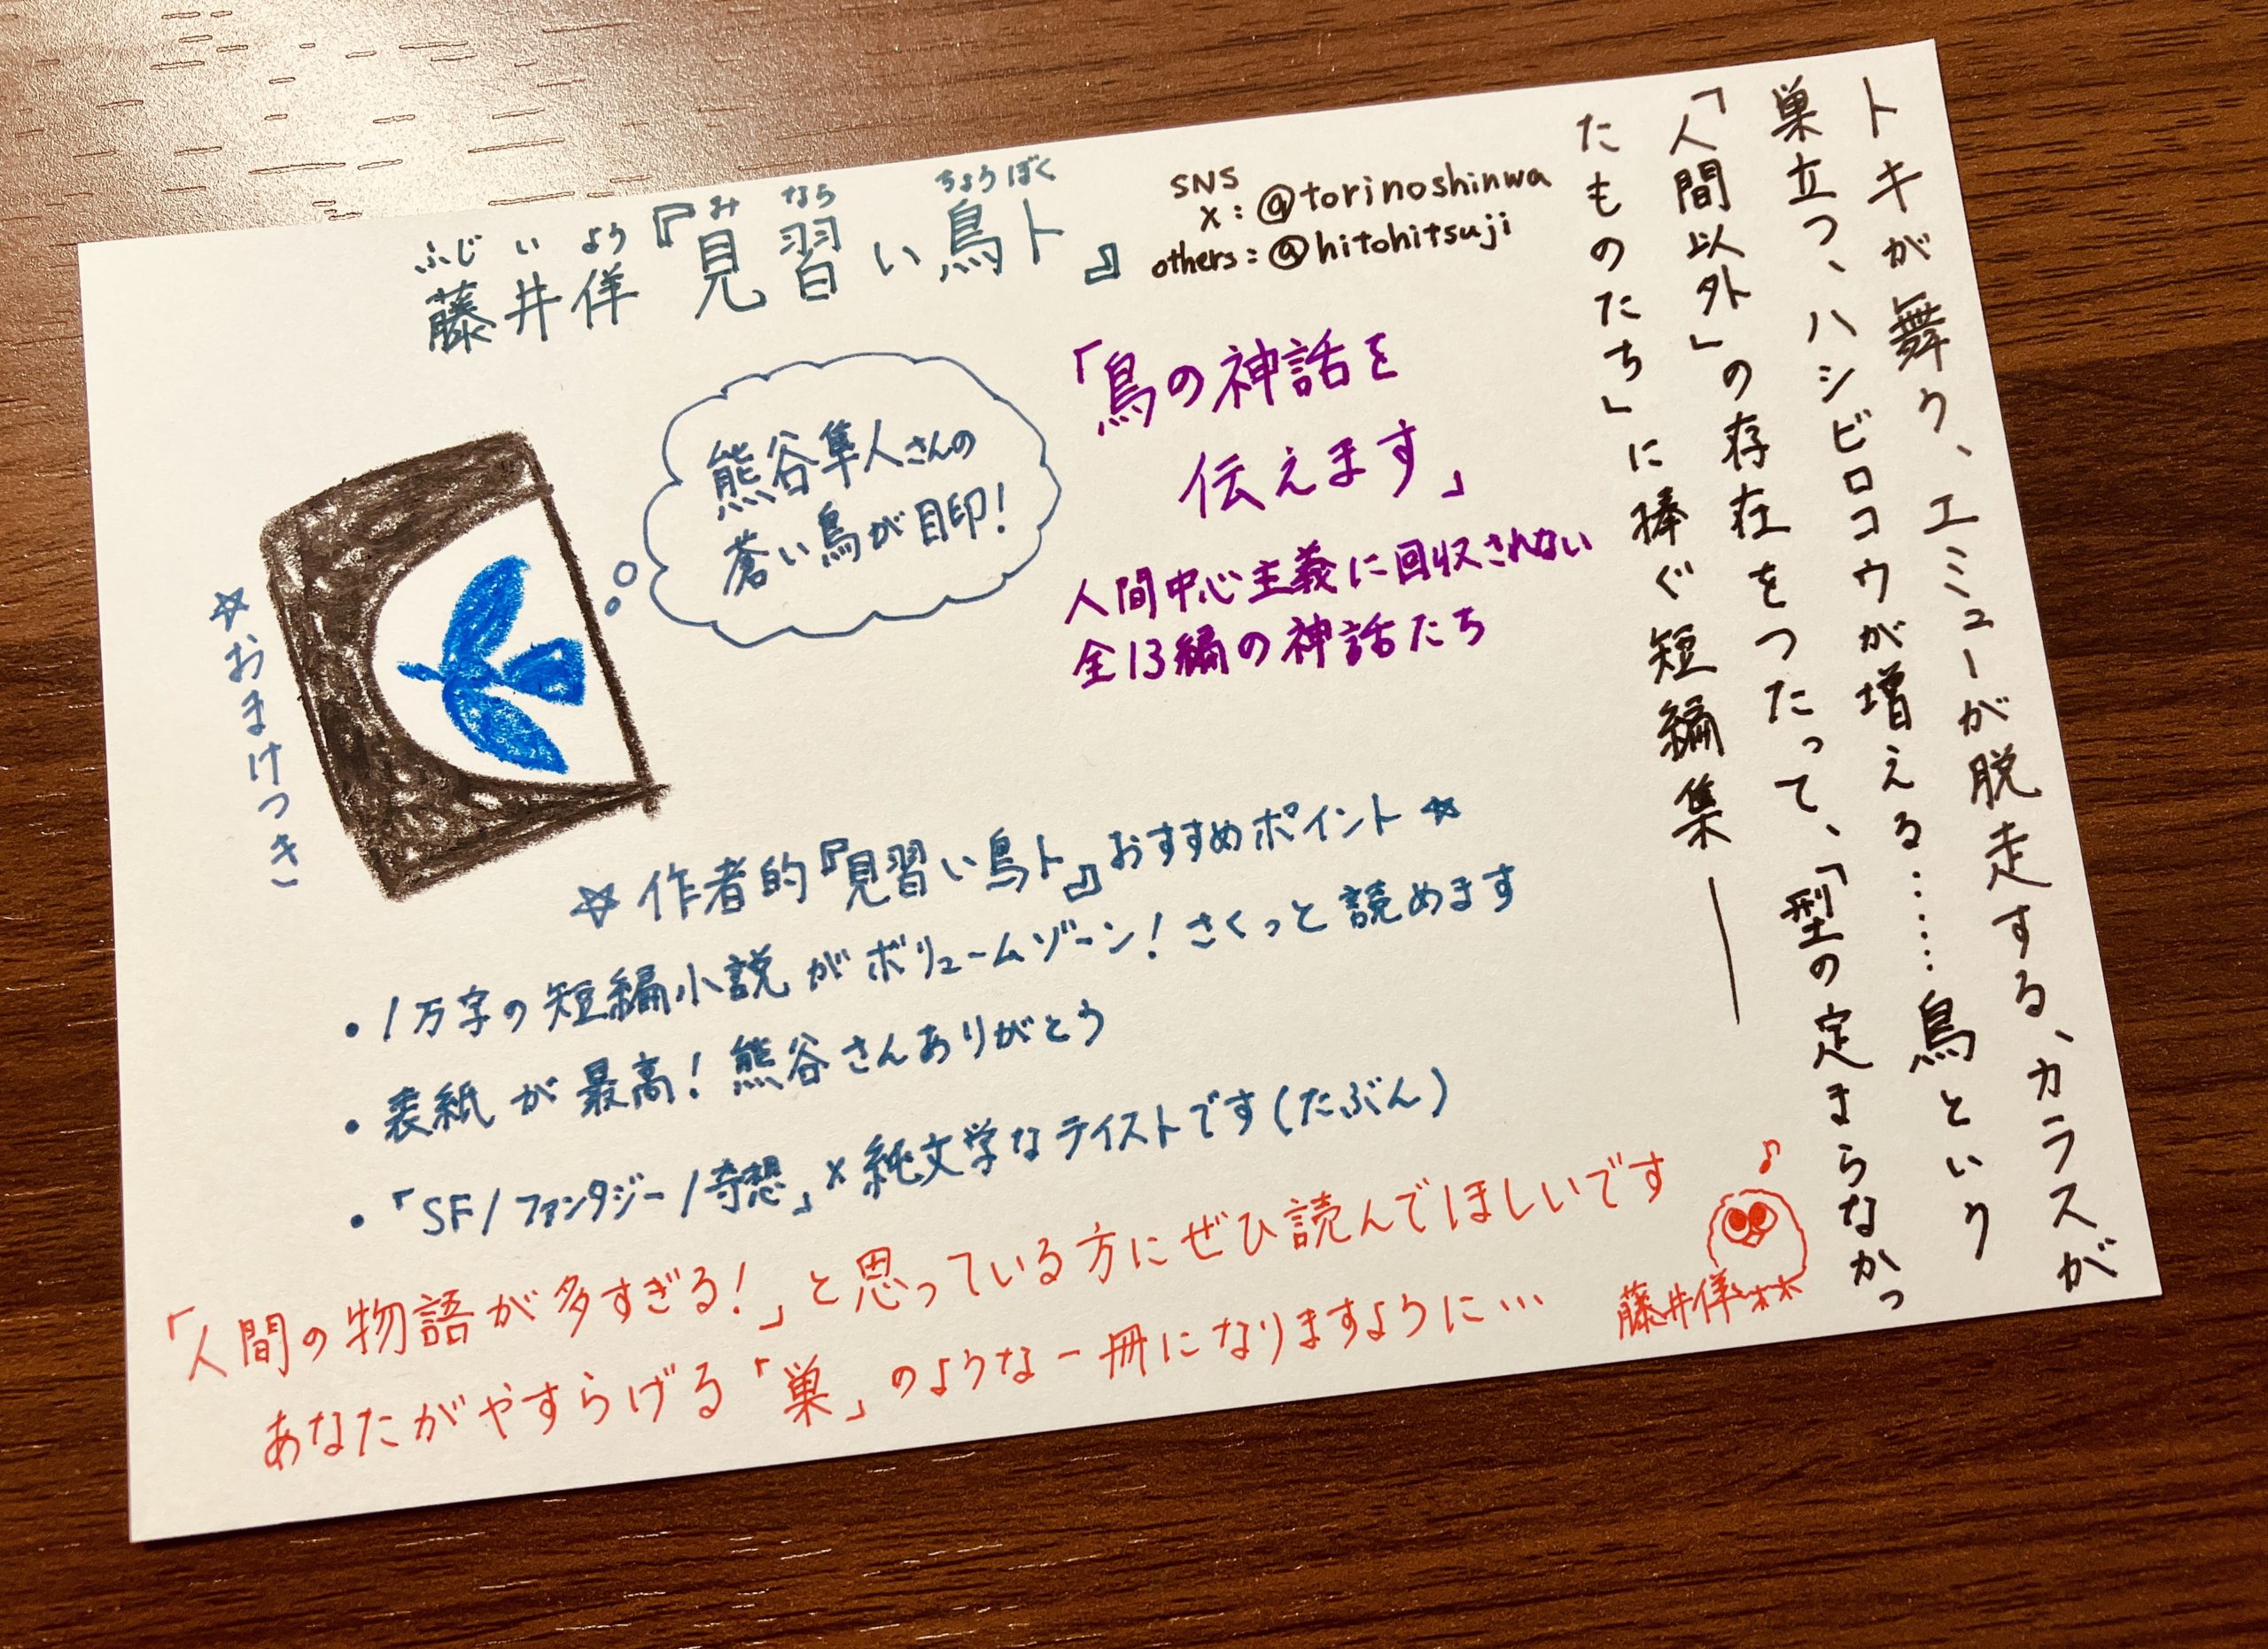 トキが舞う、エミューが脱走する、カラスが
巣立つ、ハシビロコウが増える……鳥という
「人間以外」の存在をつたって、「型の定まらなかっ
たものたち」に捧ぐ短編集――
SNS
X:@torinoshinwa
others:@hitohitsuji
ふじいよう みなら ちょうぼく
藤井佯『見習い鳥卜』
「鳥の神話を
伝えます」
人間中心主義に回収されない
全13編の神話たち
熊谷隼人さんの
蒼い鳥が目印!
☆おまけつき
☆作者的『見習い鳥卜』おすすめポイント☆
・1万字の短編小説がボリュームゾーン!さくっと読めます
・表紙が最高!熊谷さんありがとう
・「SF/ファンタジー/奇想」×純文学なテイストです(たぶん)
「人間の物語が多すぎる!」と思っている方にぜひ読んでほしいです
あなたがやすらげる「巣」のような一冊になりますように…
♪
藤井佯